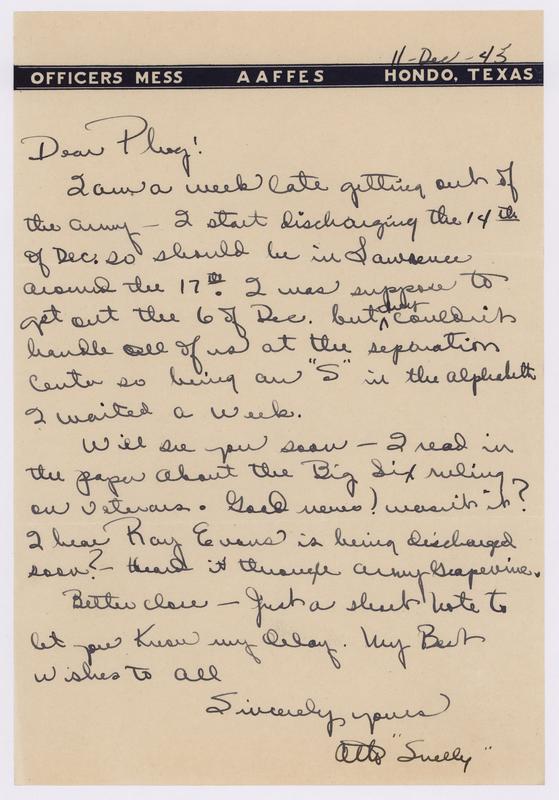 11-Dec-45
OFFICERS MESS AAFFES HONDO, TEXAS
Dear Phog!
I am a week late getting out of
the army - I start discharging the 14th
of Dec. so should be in Lawrence
around the 17th. I was suppose to
get out the 6 of Dec. but they couldn't
handle all of us at the separation
Center so being an "S" in the alphabeth
I waited a week.
Will see you soon - I read in
the paper about the Big Six ruling
on veterans. Good news! wasn't it?
I hear Ray Evans is being discharged
soon? - Heard it through army Grapevine.
Better close - Just a short note to
let you Know my delay. My Best
wishes to all
Sincerely yours
Otto "Snelly"